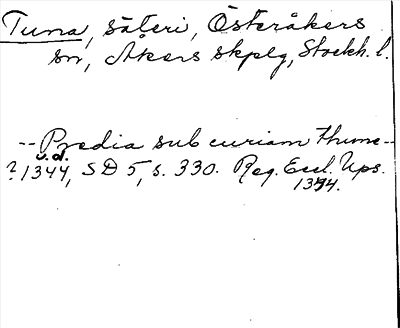 Tuna, säteri, Österåkers
sn, Åkers skplg, Stockh. l.
-- Predia sub curiam thune --
u.d.
? 1344, SD 5, s. 330. Reg. Eccl. Ups.
1344.